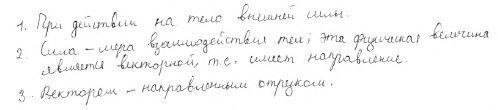 1. При действии на тело внешней силы.
2. Сила – мера взаимодействия тел; эта физичная величина
является векторной, т.е. имеет направление.
3. Вектором – направленным отрезком.